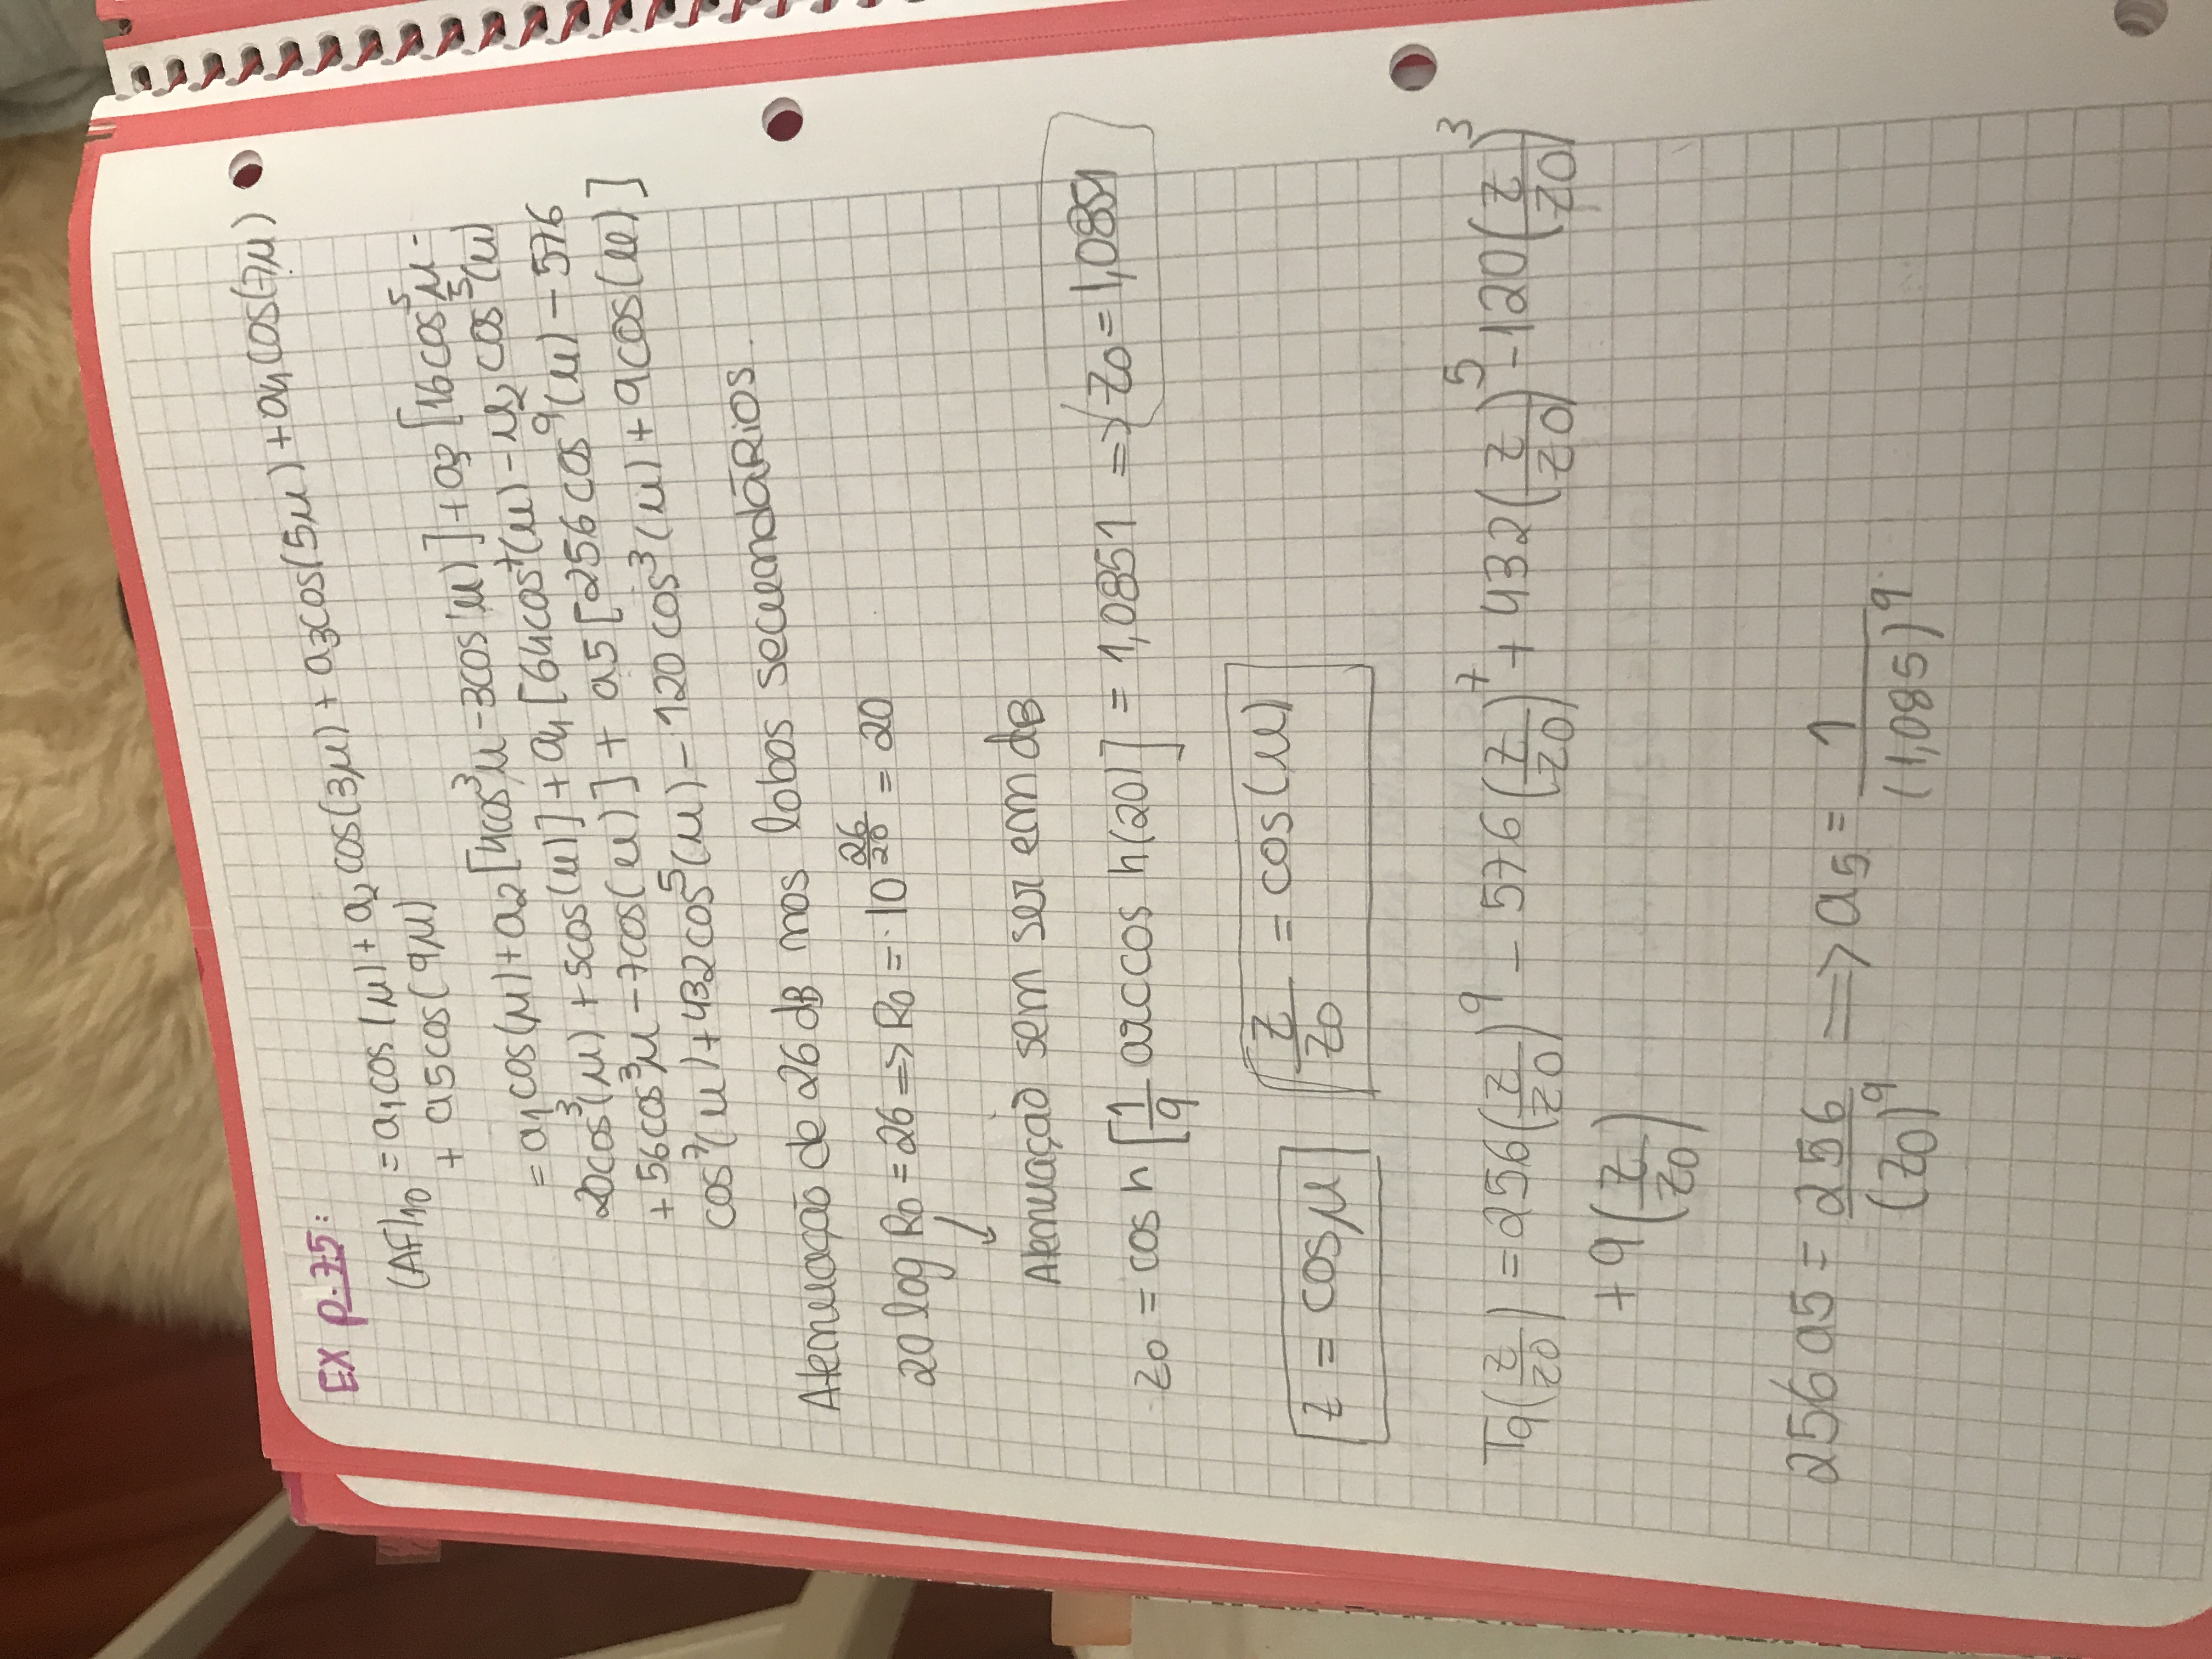 EX p.75:
(AF)₁₀ = a₁cos(μ) + a₂ cos(3μ) + a₃cos(5μ) + a₄ cos(7μ)
+ a5cos(9μ)
= a₁cos(μ) + a₂ [4cos³μ - 3cos(μ)] + a₃ [16cos⁵μ -
20cos³(μ) + 5cos(μ)] + a₄ [64cos⁷(μ) - μ₂ cos⁵(μ)
+ 56cos³μ - 7cos(μ)] + a5 [256cos⁹(μ) - 576
cos⁷(μ) + 432cos⁵(μ) - 120cos³(μ) + 9cos(μ)]
Atenuação de 26 dB nos lobos secundários.
20 log R₀ = 26 => R₀ = 10^(26/20) = 20
↓
Atenuação sem ser em dB
z₀ = cos h [1/9 arccos h(20)] = 1,0851 => z₀ = 1,0851
z = cosμ z/z₀ = cos(μ)
T₉(z/z₀) = 256(z/z₀)⁹ - 576(z/z₀)⁷ + 432(z/z₀)⁵ - 120(z/z₀)³
+ 9(z/z₀)
256 a5 = 256/(z₀)⁹ => a₅ = 1/(1,085)⁹